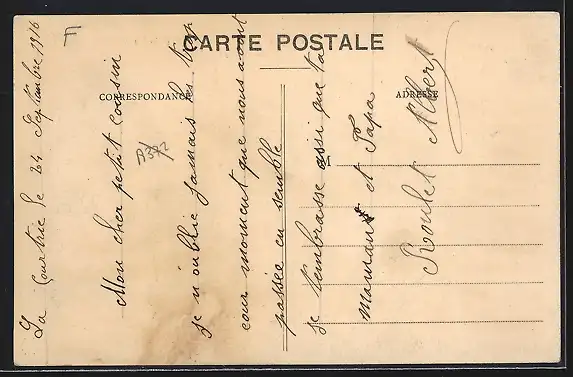 CARTE POSTALE
CORRESPONDANCE
ADRESSE
M
F
A372
La Courtine le 24 Septambre 1916
Mon cher petit cousin
je n'oublie jamais les trop
cour moment que nous avont
passée en semble
je t'embrasse assi que ta
maman et Papa
Roulet Albert